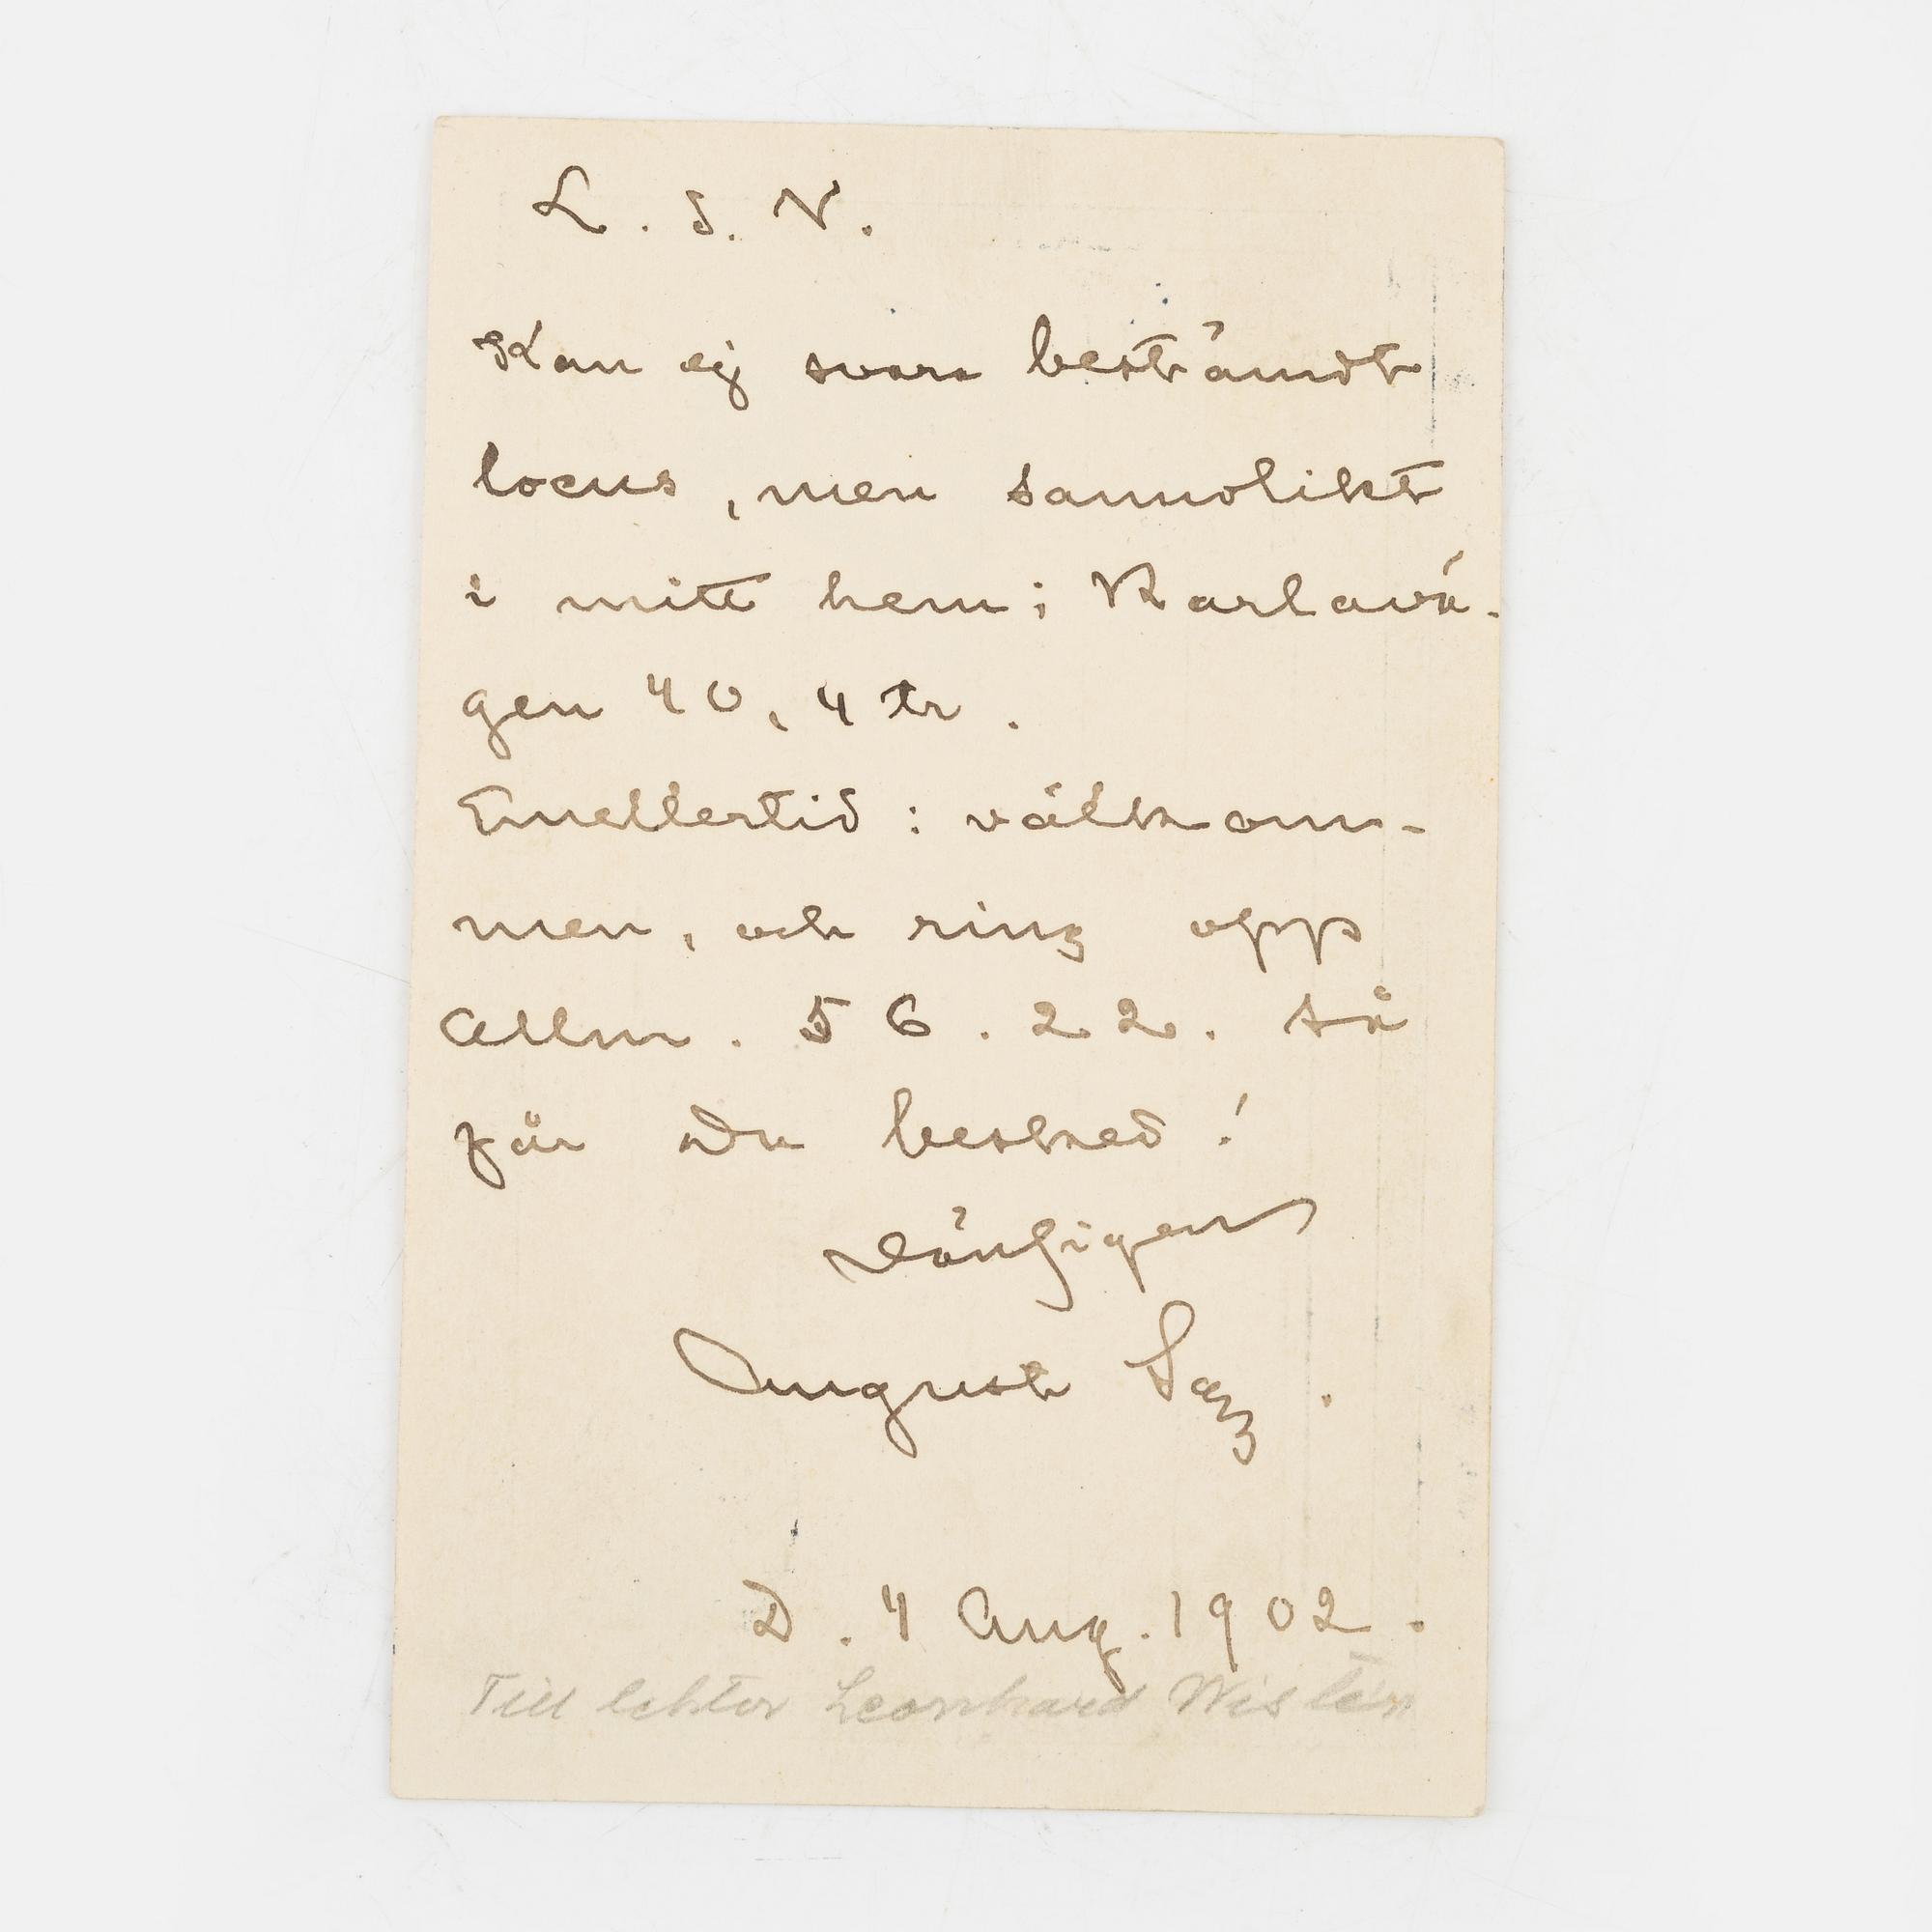 L. S. N.
Kan ej svara bestämdt
locus, men sannolikt
i mitt hem; Karlavä-
gen 40, 4 tr.
Emellertid: välkom-
men, och ring opp
Allm. 56.22. så
får Du besked!
August
D. 4 Aug. 1902.
Till lektor Leonhard Wistén